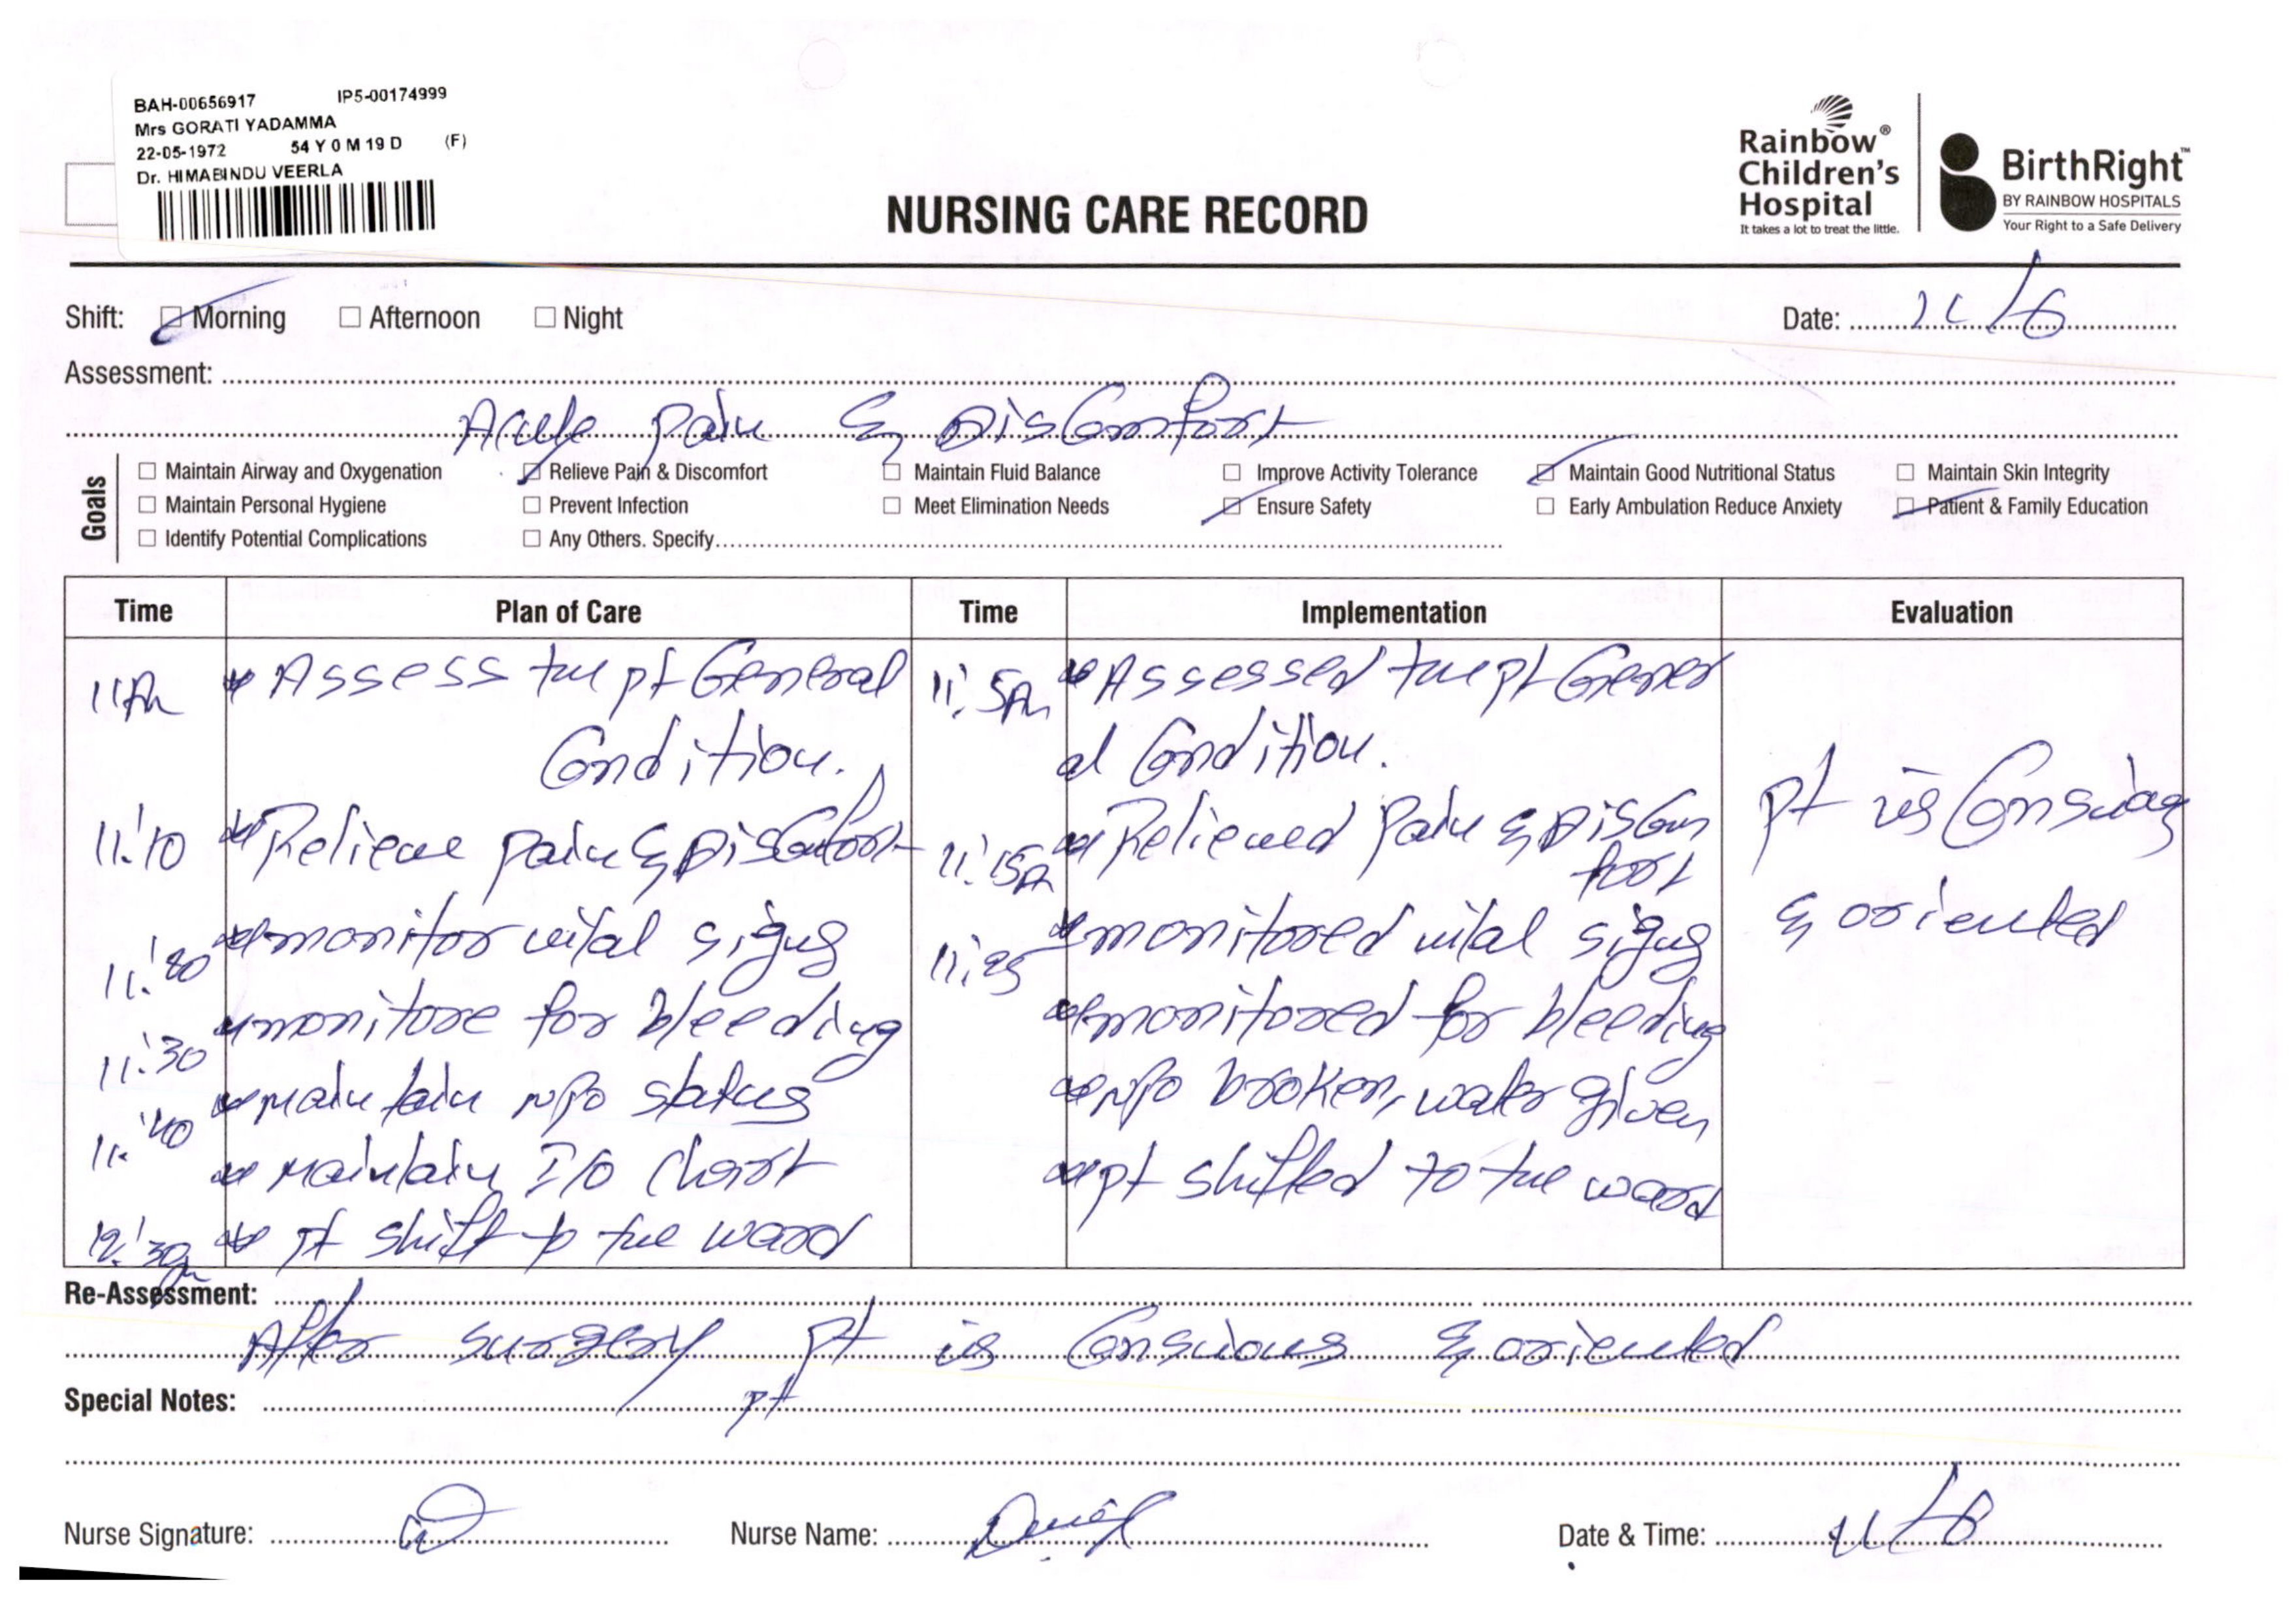 BAH-00656917 IP5-00174999
Mrs GORATI YADAMMA
22-05-1972 54 Y 0 M 19 D (F)
Dr. HIMABINDU VEERLA
NURSING CARE RECORD
Rainbow®
Children's
Hospital
It takes a lot to treat the little.
BirthRight™
BY RAINBOW HOSPITALS
Your Right to a Safe Delivery
Shift: Morning Afternoon Night Date: 11/6
Assessment:
Acute pain & Discomfort
Goals
Maintain Airway and Oxygenation Relieve Pain & Discomfort Maintain Fluid Balance Improve Activity Tolerance Maintain Good Nutritional Status Maintain Skin Integrity
Maintain Personal Hygiene Prevent Infection Meet Elimination Needs Ensure Safety Early Ambulation Reduce Anxiety Patient & Family Education
Identify Potential Complications Any Others. Specify
Time Plan of Care Time Implementation Evaluation
11Am Assess the pt General 11:5Am Assessed the pt Gener
Condition. al Condition.
11:10 Relieve pain & Discomfort 11:15A Relieved pain & Discom pt is Conscious
fort
monitor vital signs 11:25 monitored vital signs & oriented
11:20
monitore for bleeding monitored for bleeding
11:30
maintain npo status npo broken, water given
11:40
maintain I/O Chart pt shifted to the ward
12:30 pt shift to the ward
Re-Assessment:
After surgery pt is Conscious & oriented
Special Notes: pt
Nurse Signature: Nurse Name: Date & Time: 11/6